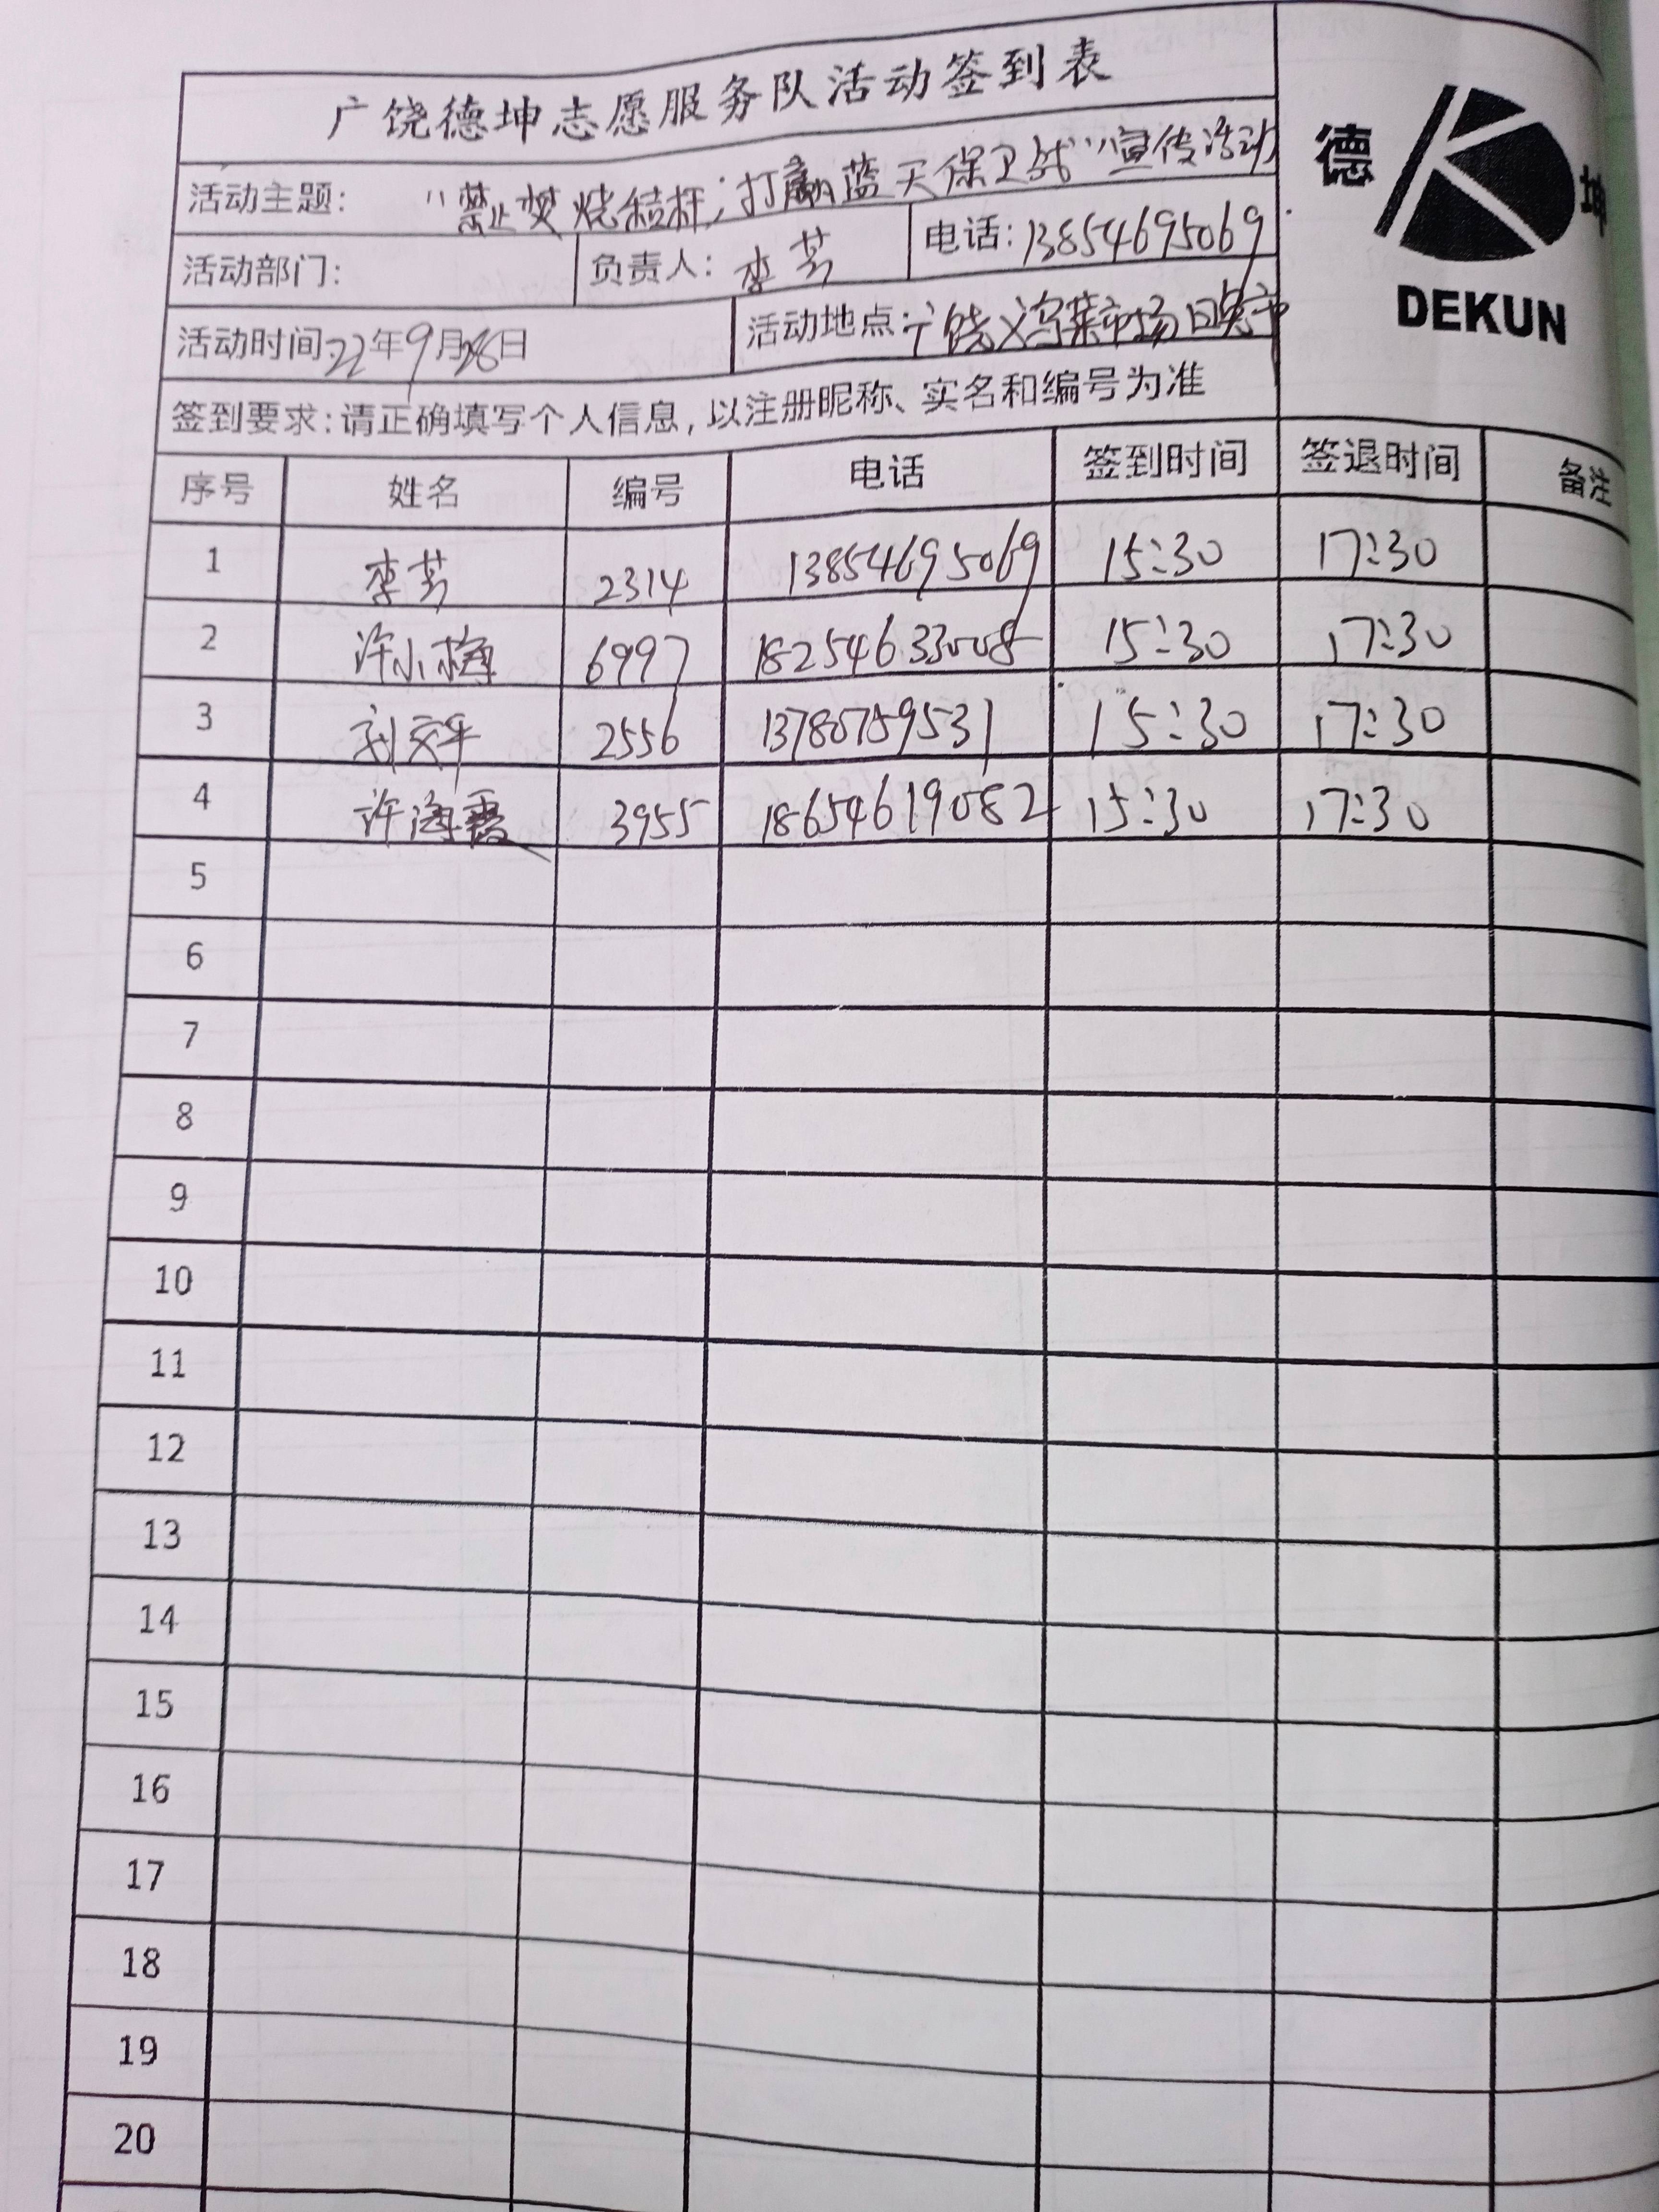 广饶德坤志愿服务队活动签到表
德 坤
DEKUN
活动主题: “禁止焚烧秸杆;打赢蓝天保卫战”宣传活动
活动部门: 负责人: 李芳 电话: 13854695069
活动时间 22年9月28日 活动地点: 广饶义乌菜市场
签到要求:请正确填写个人信息,以注册昵称、实名和编号为准
序号 姓名 编号 电话 签到时间 签退时间 备注
1 李芳 2314 13854695069 15:30 17:30
2 许小梅 6997 18254633008 15:30 17:30
3 刘文平 2556 13780759531 15:30 17:30
4 许海霞 3955 18654619082 15:30 17:30
5
6
7
8
9
10
11
12
13
14
15
16
17
18
19
20